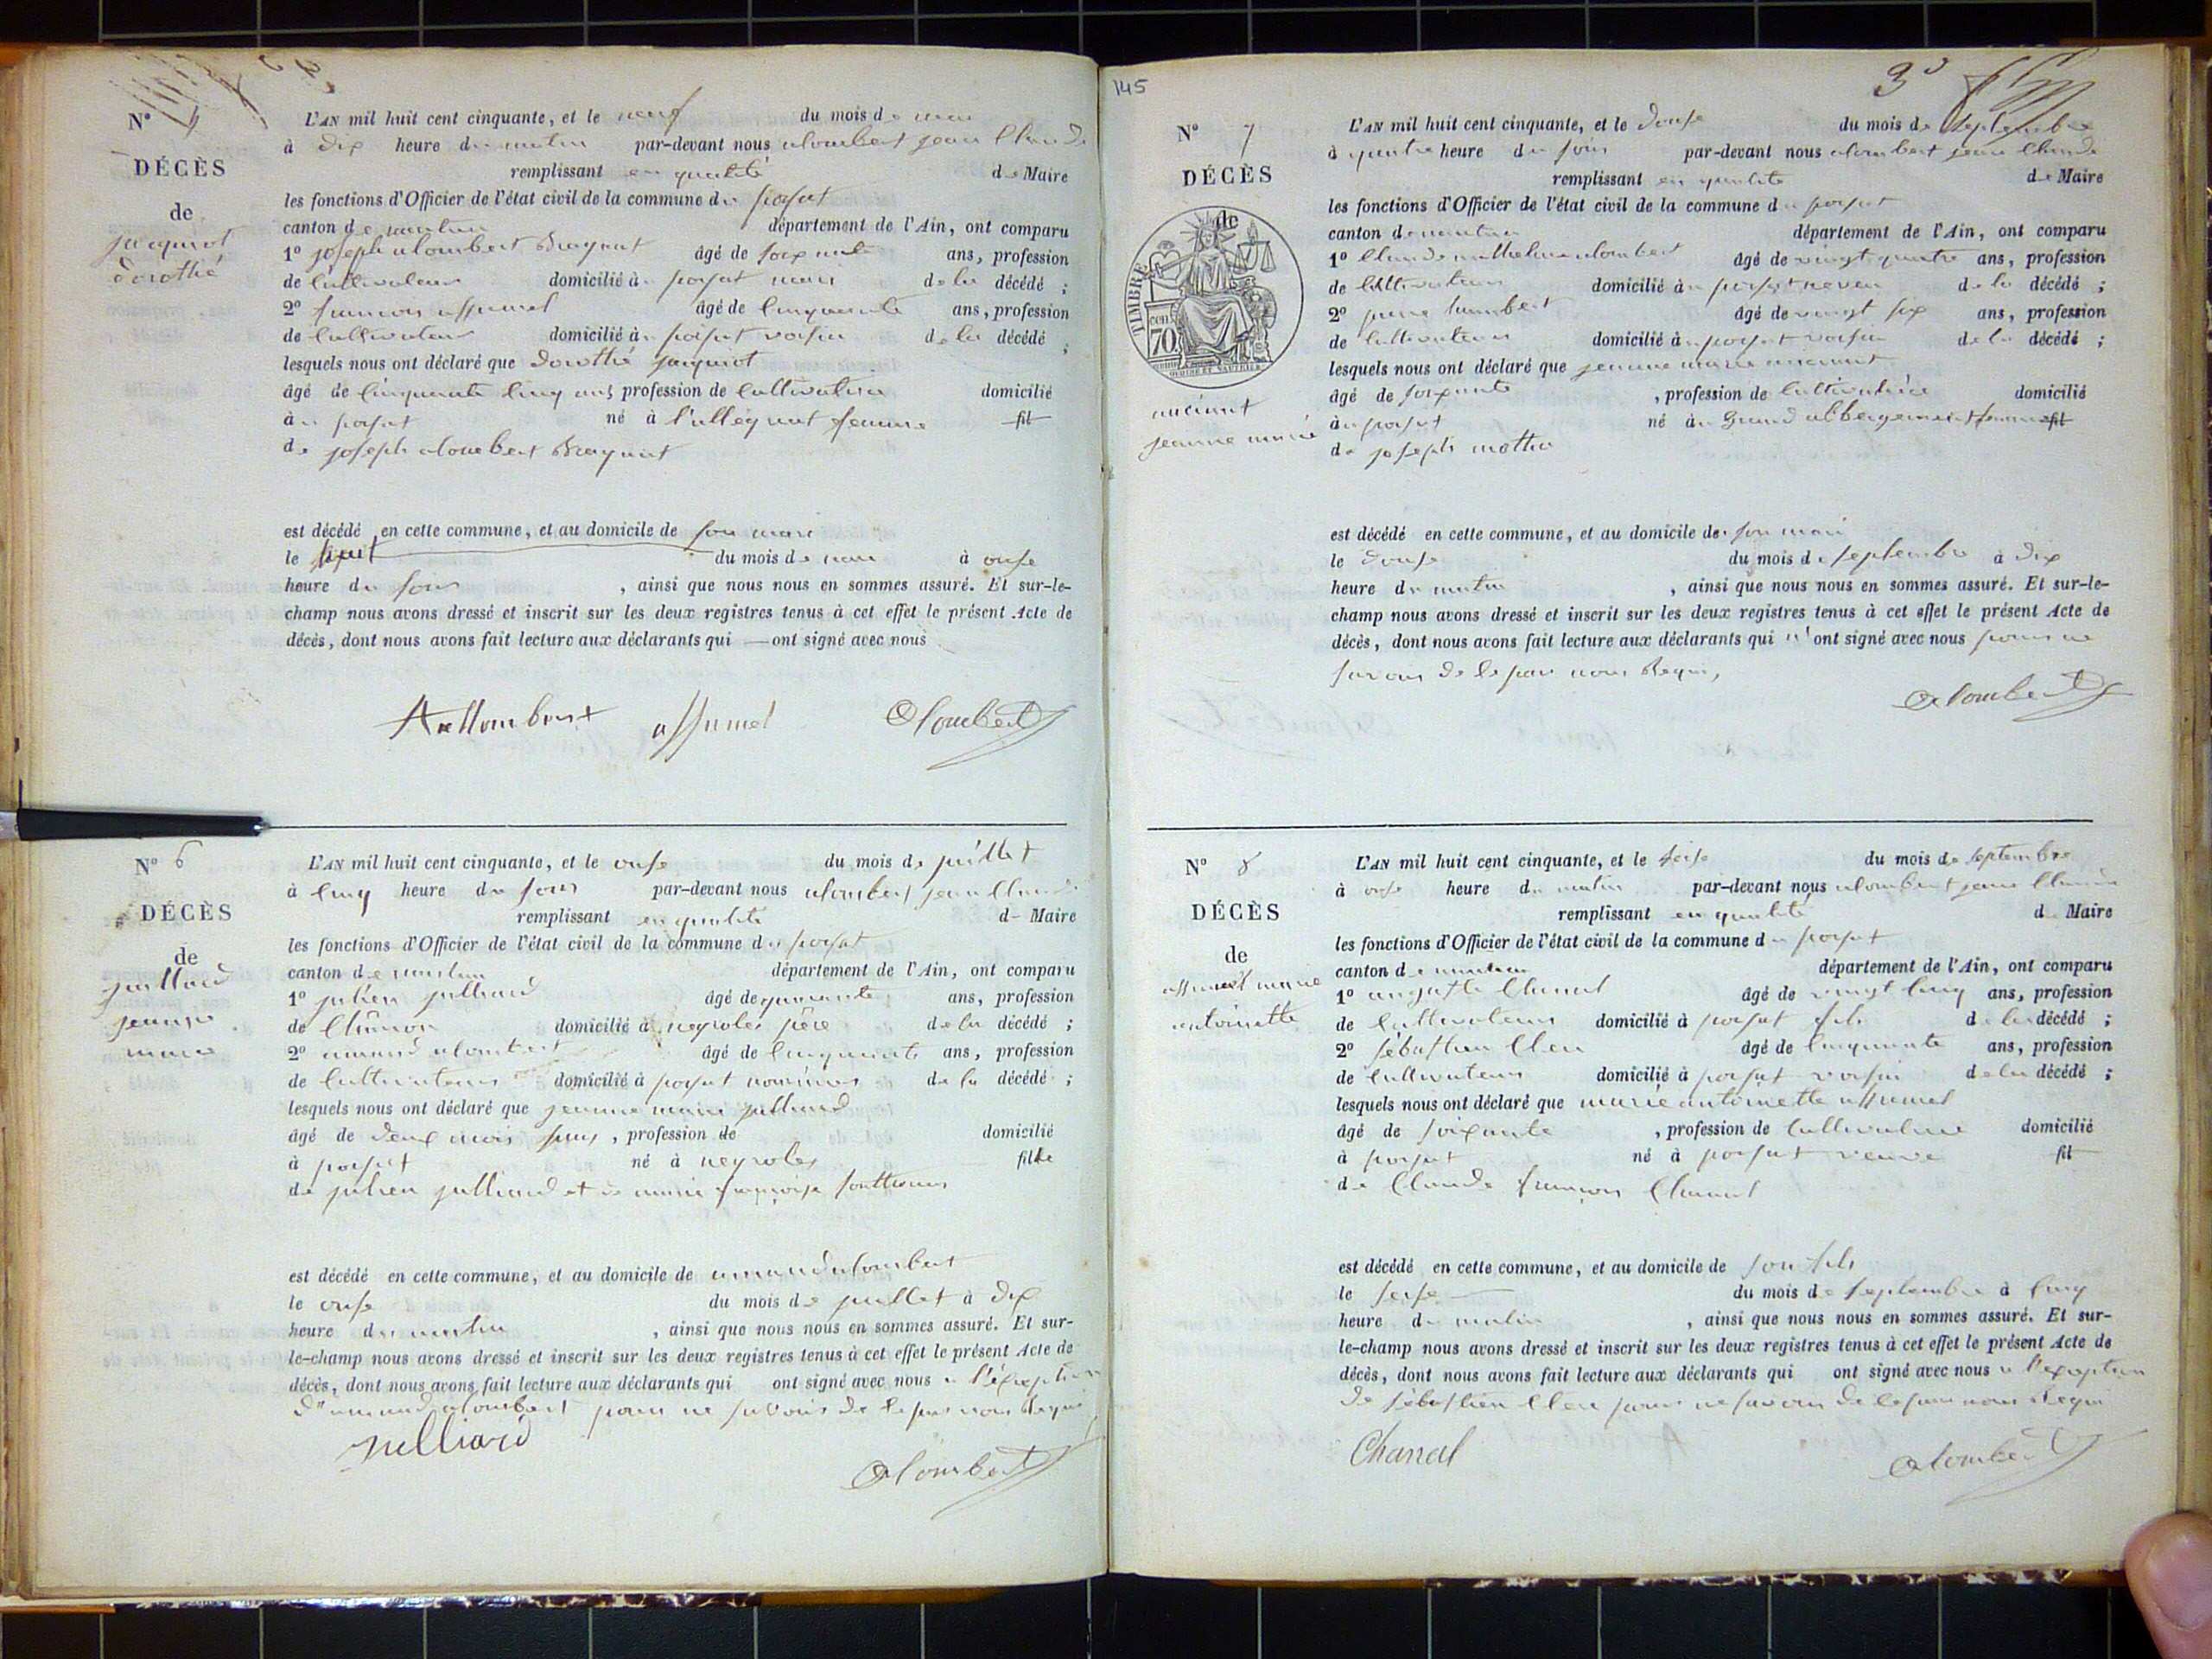 N°
DÉCÈS
de
jacquiot
dorothé
L'AN mil huit cent cinquante, et le neuf du mois de mai
à dix heure du matin par-devant nous alombert jean Claude
remplissant en qualité de Maire
les fonctions d'Officier de l'état civil de la commune du poisat
canton de nantua département de l'Ain, ont comparu
1° joseph alombert âgé de soixante ans, profession
de Cultivateur domicilié à poisat mari de la décédé ;
2° francois assumel âgé de Cinquante ans, profession
de Cultivateur domicilié au poisat voisin de la décédé ;
lesquels nous ont déclaré que dorothé jacquiot
âgé de Cinquante Cinq ans profession de Cultivatrice domicilié
au poisat né à l'alleyriat femme fil
de joseph alombert
est décédé en cette commune, et au domicile de son mari
le du mois de mai à onse
heure du soir , ainsi que nous nous en sommes assuré. Et sur-le-
champ nous avons dressé et inscrit sur les deux registres tenus à cet effet le présent Acte de
décès, dont nous avons fait lecture aux déclarants qui — ont signé avec nous
assumel Alombert
N° 6
DÉCÈS
de
juilliard
jeanne
marie
L'AN mil huit cent cinquante, et le onse du mois de juillet
à Cinq heure du soir par-devant nous alombert jean Claude
remplissant en qualité de Maire
les fonctions d'Officier de l'état civil de la commune du poisat
canton de nantua département de l'Ain, ont comparu
1° julien julliard âgé de quarante ans, profession
de domicilié à neyroles père de la décédé ;
2° amand alombert âgé de Cinquante ans, profession
de Cultivateur domicilié à poisat de la décédé ;
lesquels nous ont déclaré que jeanne marie julliard
âgé de deux mois , profession de domicilié
à poisat né à neyroles fille
de julien julliard et de marie françoise
est décédé en cette commune, et au domicile de amand alombert
le onse du mois de juillet à dix
heure du matin , ainsi que nous nous en sommes assuré. Et sur-
le-champ nous avons dressé et inscrit sur les deux registres tenus à cet effet le présent Acte de
décès, dont nous avons fait lecture aux déclarants qui ont signé avec nous a l'exeption
d'amand alombert pour ne savoir de le par nous Requi
Julliard
Alombert
145
3
N° 7
DÉCÈS
de
TIMBRE
cen
70
anciant
jeanne marie
L'AN mil huit cent cinquante, et le douse du mois de septembre
à quatre heure du soir par-devant nous alombert jean Claude
remplissant en qualité de Maire
les fonctions d'Officier de l'état civil de la commune du poisat
canton de nantua département de l'Ain, ont comparu
1° Claude alombert âgé de vingt quatre ans, profession
de Cultivateur domicilié au poisat neveu de la décédé ;
2° humbert âgé de vingt six ans, profession
de Cultivateur domicilié au poisat voisin de la décédé ;
lesquels nous ont déclaré que jeanne marie anciant
âgé de soixante , profession de Cultivatrice domicilié
au poisat né au Grand abbergement femme fil
de joseph mathieu
est décédé en cette commune, et au domicile de son mari
le douse du mois de septembre à dix
heure du matin , ainsi que nous nous en sommes assuré. Et sur-le-
champ nous avons dressé et inscrit sur les deux registres tenus à cet effet le présent Acte de
décès, dont nous avons fait lecture aux déclarants qui n'ont signé avec nous pour ne
savoir de le par nous Requi,
Alombert
N° 8
DÉCÈS
de
assumel marie
antoinette
L'AN mil huit cent cinquante, et le seise du mois de septembre
à onse heure du matin par-devant nous alombert jean Claude
remplissant en qualité de Maire
les fonctions d'Officier de l'état civil de la commune du poisat
canton de nantua département de l'Ain, ont comparu
1° auguste Chanal âgé de vingt Cinq ans, profession
de Cultivateur domicilié à poisat fils de la décédé ;
2° sébastien Cleu âgé de Cinquante ans, profession
de Cultivateur domicilié à poisat voisin de la décédé ;
lesquels nous ont déclaré que marie antoinette assumel
âgé de soixante , profession de Cultivatrice domicilié
à poisat né à poisat veuve fil
de Claude françois Chanal
est décédé en cette commune, et au domicile de son fils
le seise du mois de septembre à Cinq
heure du matin , ainsi que nous nous en sommes assuré. Et sur-
le-champ nous avons dressé et inscrit sur les deux registres tenus à cet effet le présent Acte de
décès, dont nous avons fait lecture aux déclarants qui ont signé avec nous a l'exeption
de sébastien Cleu pour ne savoir de le par nous Requi
Chanal
Alombert